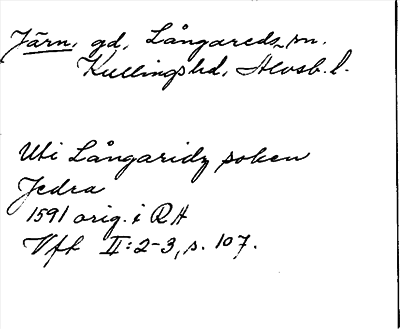 Järn, gd, Långareds sn.
Kullings hd, Älvsb. l.
Uti Långaridz soken
Jedra
1591 orig. i RA
Vft II:2-3, s. 107.